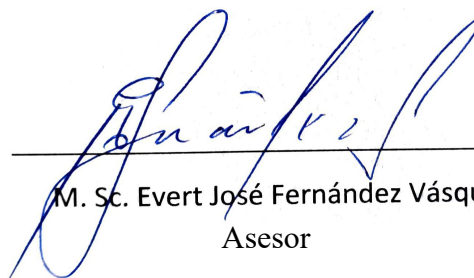 M. Sc. Evert José Fernández Vásqu
Asesor